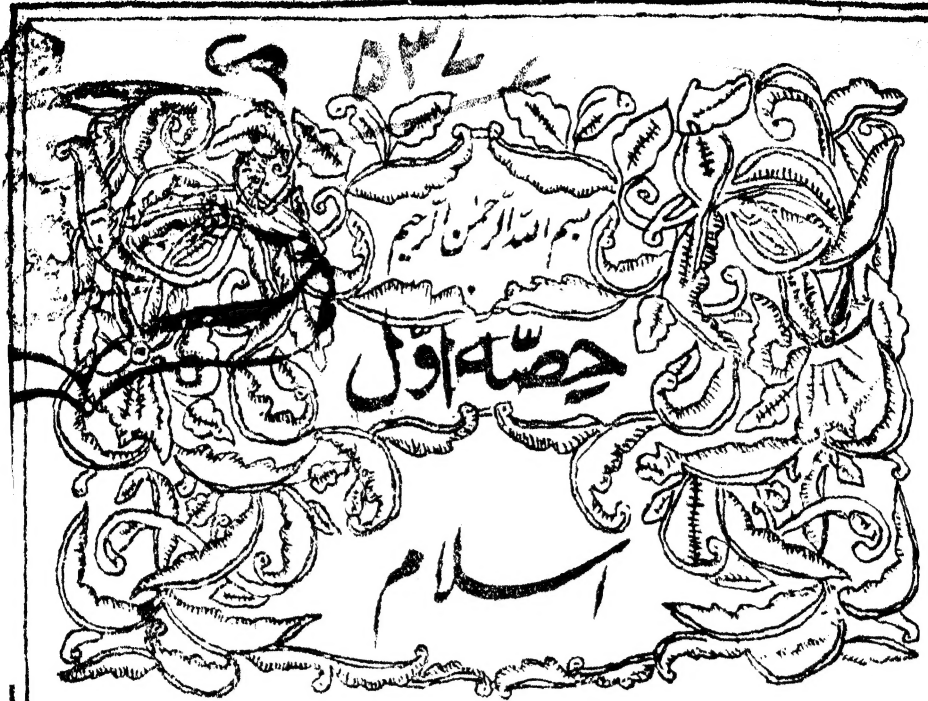 ۵۳۷
بسم اللہ الرحمٰن الرحیم
حصّہ اوّل
اسلام